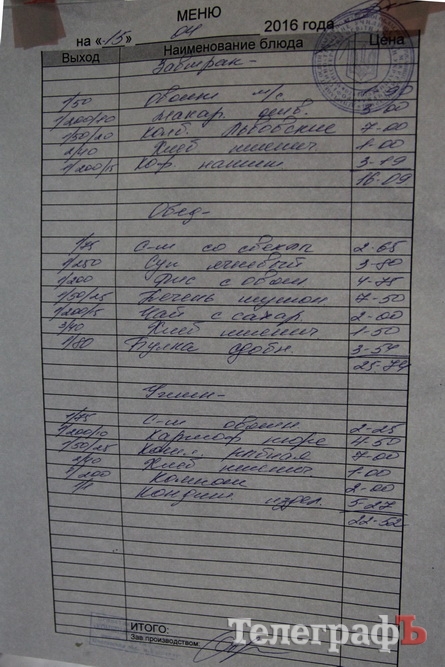 МЕНЮ
на «15» 04 2016 года
Выход Наименование блюда Цена
Завтрак-
1/50 Овощи
1/200/10 Макар. 3-00
1/50/20 Колб. Львовские 7-00
2/40 Хлеб пшенич 1-00
1/200/15 Коф. напит 3-19
16-09
Обед-
1/75 С-т со свеклы 2-65
1/250 Суп ячневый 3-80
1/200 Рис с овощ 4-75
1/50/25 Печень тушон 7-50
1/200/5 Чай с сахар 2-00
3/40 Хлеб пшенич 1-50
1/80 Булка сдобн 3-59
25-79
Ужин-
1/75 С-т овощн 2-25
1/200/10 Картоф пюре 4-50
1/50/25 Котл. рыбная 7-00
2/40 Хлеб пшенич 1-00
1/200 Компот 2-00
Кондит. издел. 5-77
22-52
ИТОГО:
Зав.производством:
ТелеграфЪ